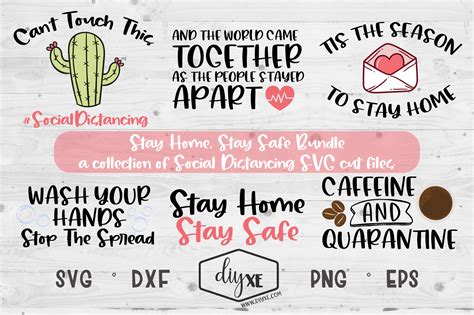 Can't Touch This,
#SocialDistancing
AND THE WORLD CAME
TOGETHER
AS THE PEOPLE STAYED
APART
TIS THE SEASON
TO STAY HOME
Stay Home, Stay Safe Bundle
a collection of Social Distancing SVG cut files
WASH YOUR
HANDS
STOP THE SPREAD
Stay Home
Stay Safe
CAFFEINE
AND
QUARANTINE
SVG · DXF
diyxe
WWW.DIYXE.COM
PNG · EPS